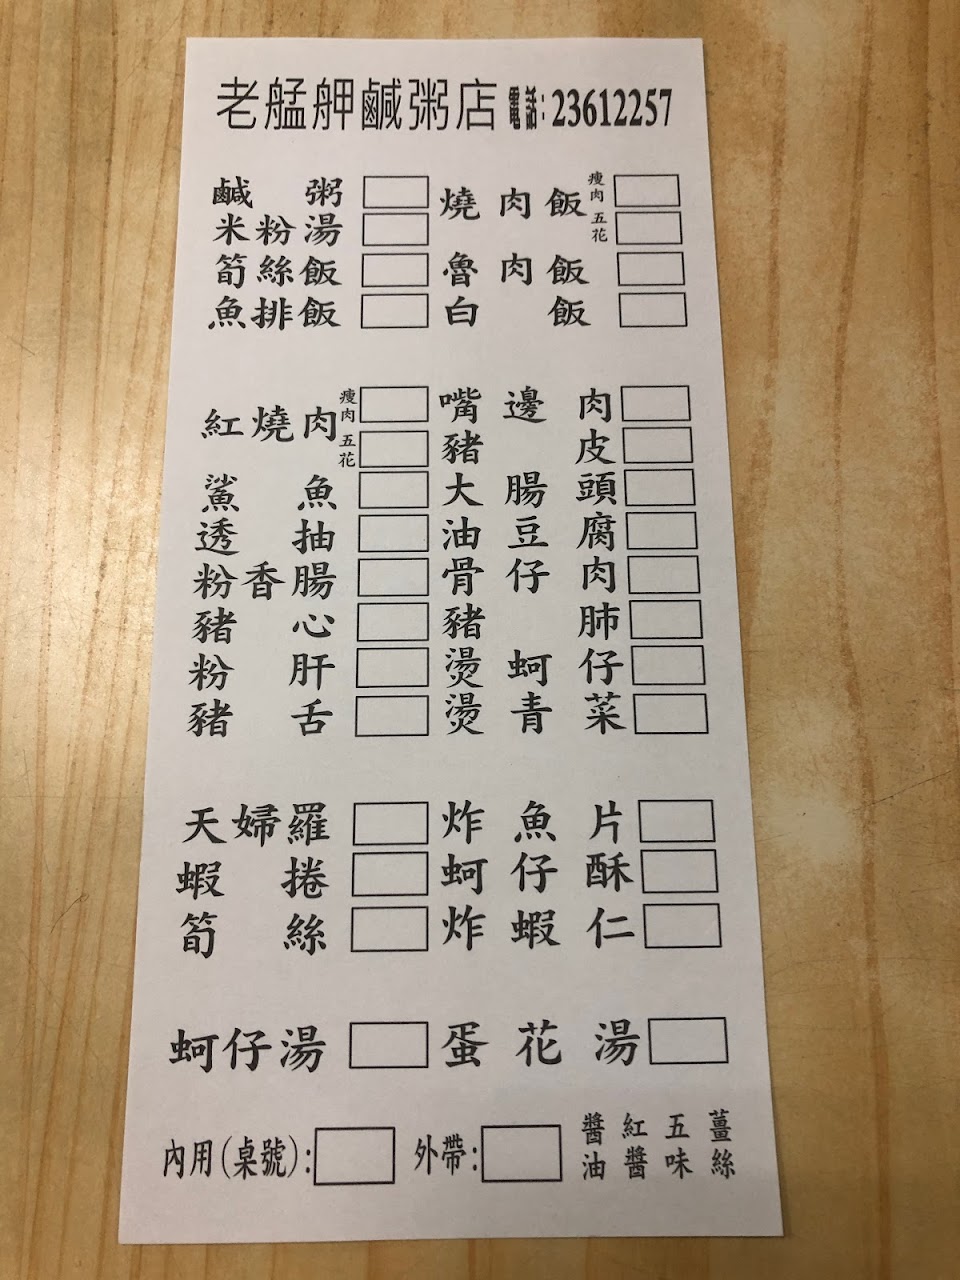 老艋舺鹹粥店 電話:23612257
鹹粥 燒肉飯 瘦肉
米粉湯 五花
筍絲飯 魯肉飯
魚排飯 白飯
紅燒肉 瘦肉 嘴邊肉
五花 豬皮
鯊魚 大腸頭
透抽 油豆腐
粉香腸 骨仔肉
豬心 豬肺
粉肝 燙蚵仔
豬舌 燙青菜
天婦羅 炸魚片
蝦捲 蚵仔酥
筍絲 炸蝦仁
蚵仔湯 蛋花湯
內用(桌號): 外帶: 醬油 紅醬 五味 薑絲